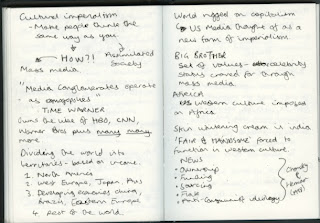 Cultural imperialism
- Make people think the
same way as you
HOW?!
Assimilated
Society
Mass media
"Media Conglomerates operate
as oligopolies
TIME WARNER
Owns the likes of HBO, CNN,
Warner Bros plus many many
more.
Dividing the world into
territories - based on income
1. North America
2. West Europe, Japan, Aus
3. Developing economies China,
Brazil, Eastern Europe
4. Rest of the world
World rigged on capitalism
US Media thought of as a
new form of imperialism
BIG BROTHER
Set of values - celebrity
status craved for through
mass media
AFRICA
US Western culture imposed
on Africa
Skin whitening cream in India
'FAIR & HANDSOME' forced to
function in western culture.
- NEWS
- Ownership
- Funding
- Sourcing
- Flak
- Anti-Communist ideology
Chomsky
&
Herman